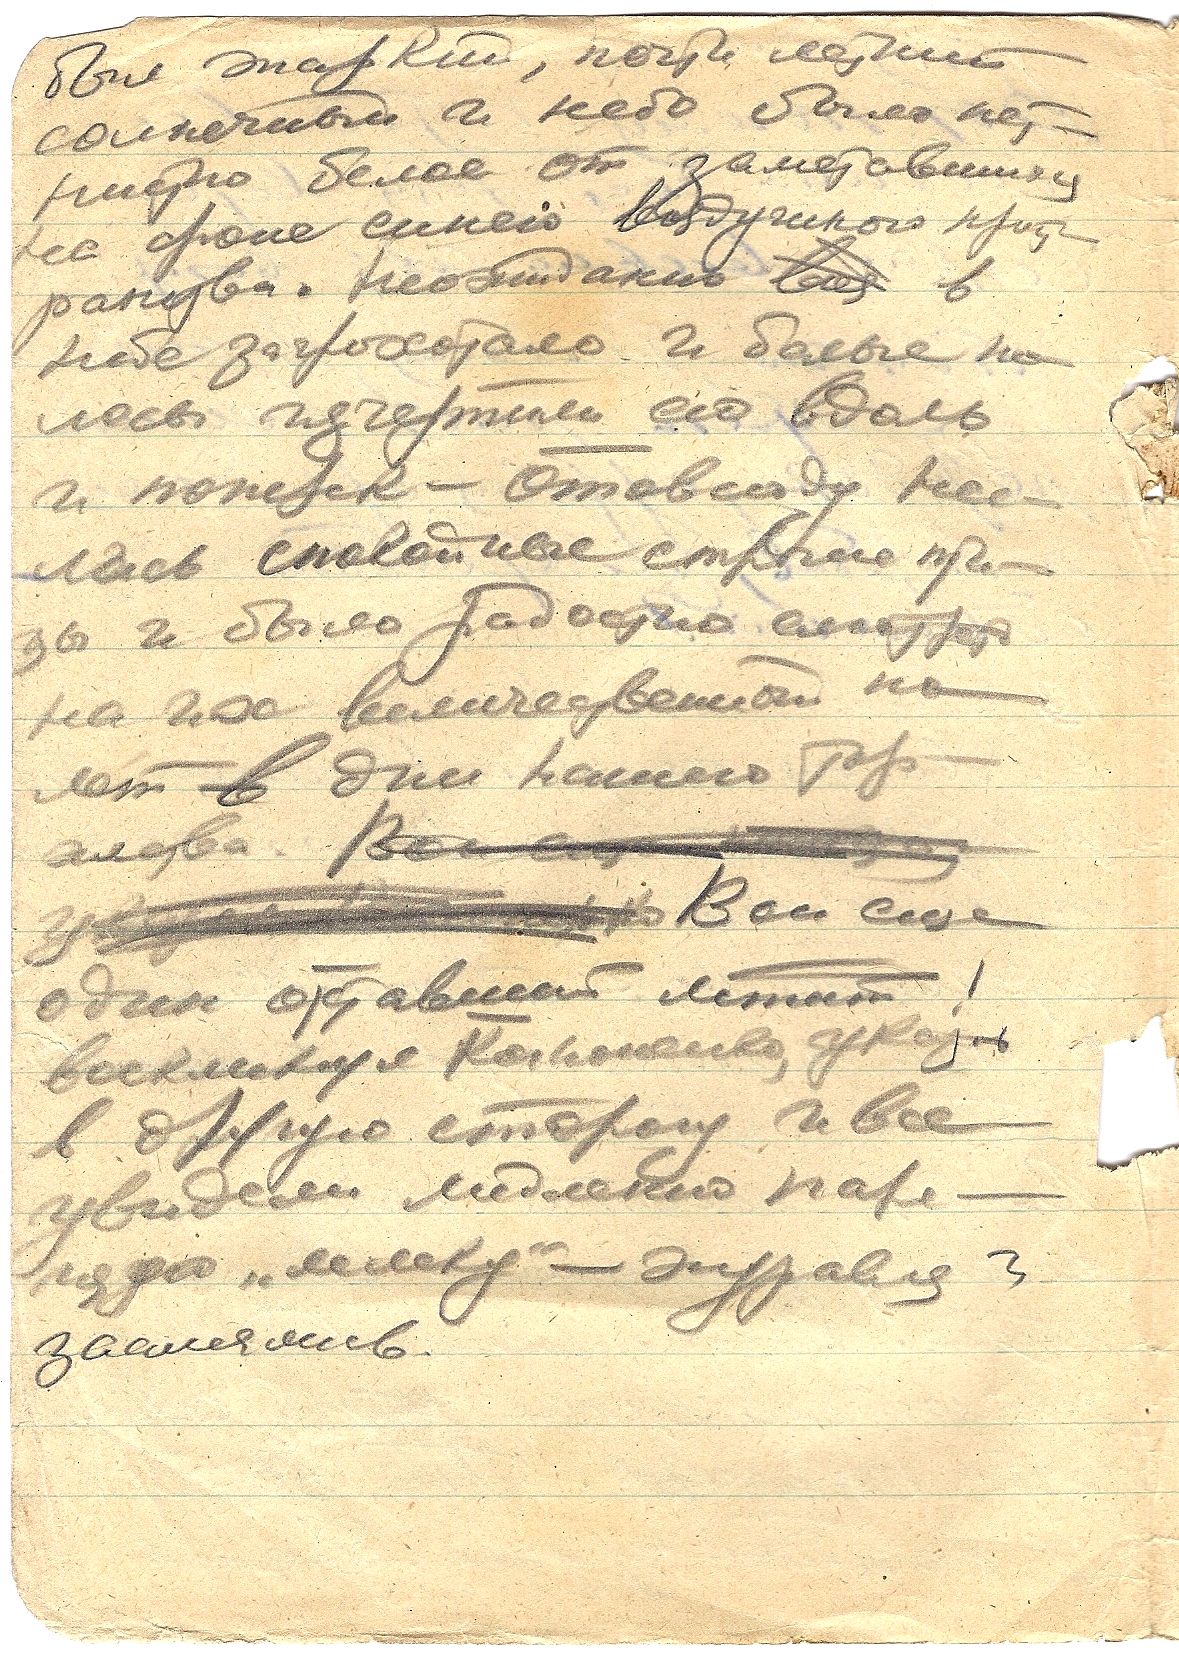 был жаркий, почти летний
солнечный и небо было пят-
нисто белое от заметавшихся
на фоне синего воздушного прост
ранства. Неожиданно в
небе загрохотало и белые по
лосы исчертили его вдоль
и поперек – отовсюду нес-
лись спокойные стройные
и было радостно смотреть
на их величественный по
лет в дни нашего тор
жества.
Вон еще
один отставший летит!
воскликнул Кононенко, указав
в другую сторону и все
увидели медленно паря-
щую „лельку“ – журавля и
засмеялись.